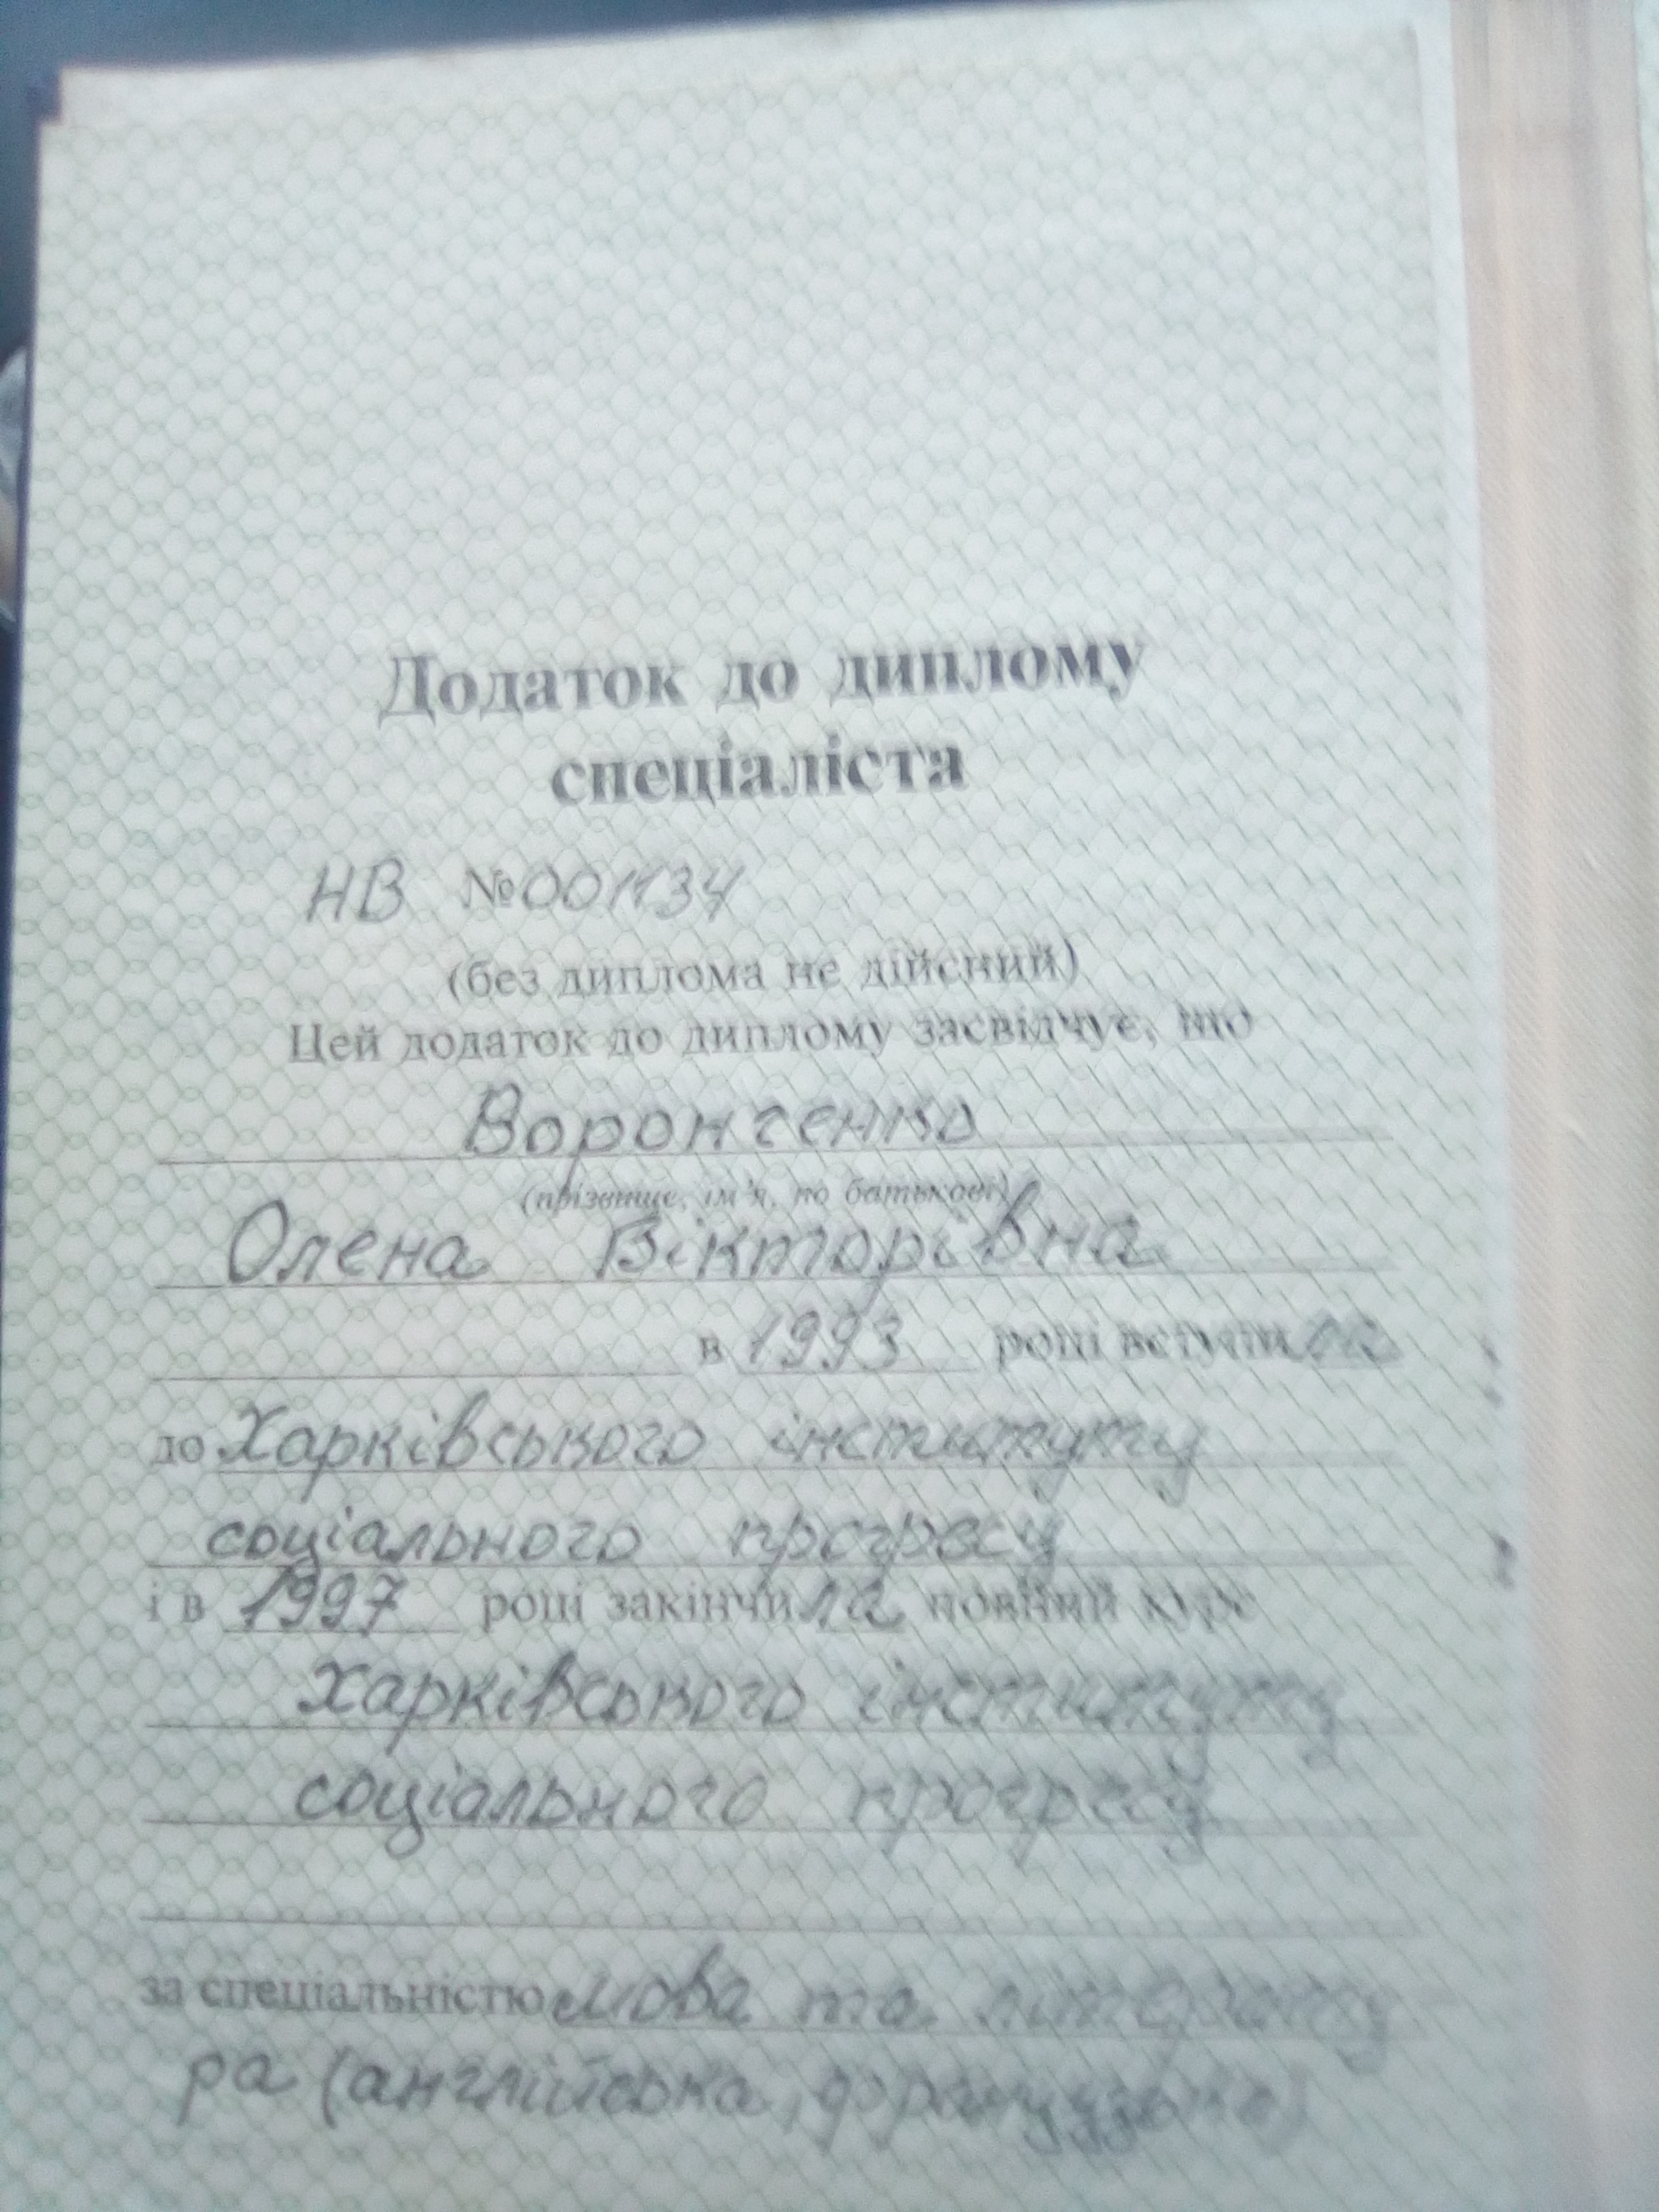 Додаток до диплому
спеціаліста
НВ №001134
(без диплома не дійсний)
Цей додаток до диплому засвідчує, що
Воронченко
(прізвище, ім'я, по батькові)
Олена Вікторівна
в 1993 році вступила
до Харківського інституту
соціального прогресу
і в 1997 році закінчила повний курс
Харківського інституту
соціального прогресу
за спеціальністю мова та літерату-
ра (англійська, французька)